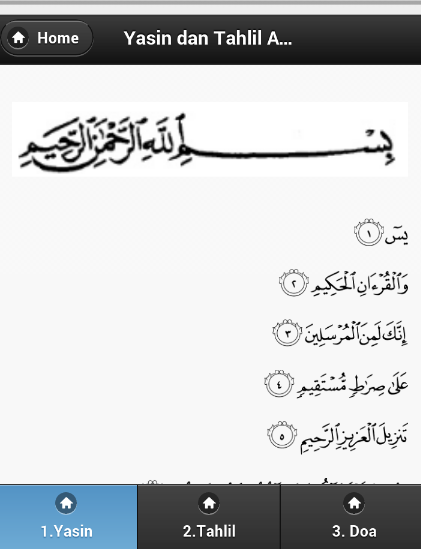 Home
Yasin dan Tahlil A...
بِسْمِ اللَّهِ الرَّحْمَٰنِ الرَّحِيمِ
يسٓ ١
وَالْقُرْءَانِ الْحَكِيمِ ٢
إِنَّكَ لَمِنَ الْمُرْسَلِينَ ٣
عَلَىٰ صِرَٰطٍ مُّسْتَقِيمٍ ٤
تَنزِيلَ الْعَزِيزِ الرَّحِيمِ ٥
1.Yasin
2.Tahlil
3. Doa